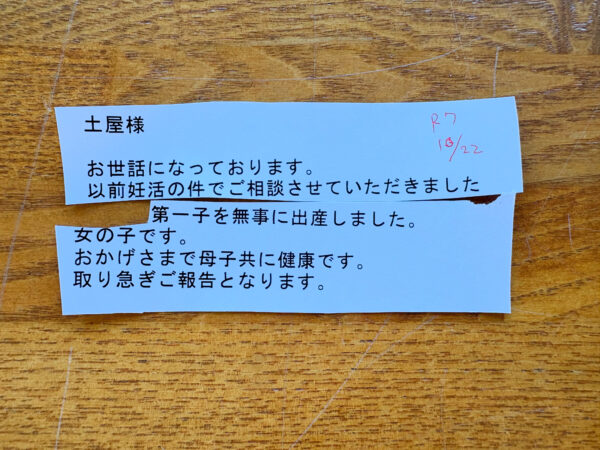 土屋様
R7
10/22
お世話になっております。
以前妊活の件でご相談させていただきました
第一子を無事に出産しました。
女の子です。
おかげさまで母子共に健康です。
取り急ぎご報告となります。